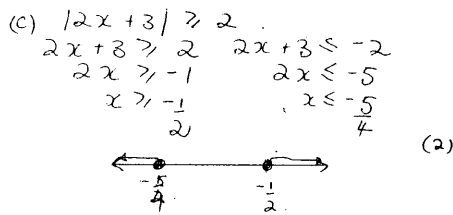 (c) |2x + 3| ≥ 2
2x + 3 ≥ 2   2x + 3 ≤ -2
2x ≥ -1   2x ≤ -5
x ≥ -1/2   x ≤ -5/4
(2)
-5/4   -1/2